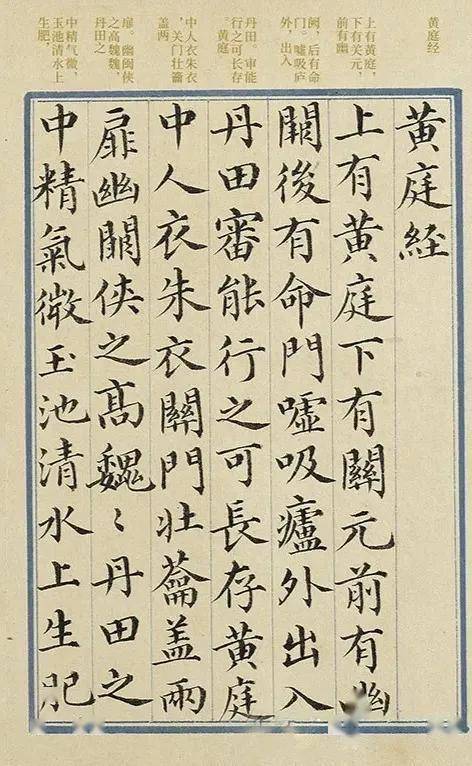 黄庭经
上有黄庭,
下有关元,
前有幽
阙,后有命
门。嘘吸庐
外,出入
丹田。审能
行之可长存
。黄庭
中人衣朱衣
,关门壮籥
盖两
扉。幽阙侠
之高魏魏,
丹田之
中精气微,
玉池清水上
生肥,
黄庭經
上有黄庭下有關元前有幽
闕後有命門噓吸廬外出入
丹田審能行之可長存黄庭
中人衣朱衣關門壯蘥盖兩
扉幽闕侠之高魏〻丹田之
中精氣微玉池清水上生肥